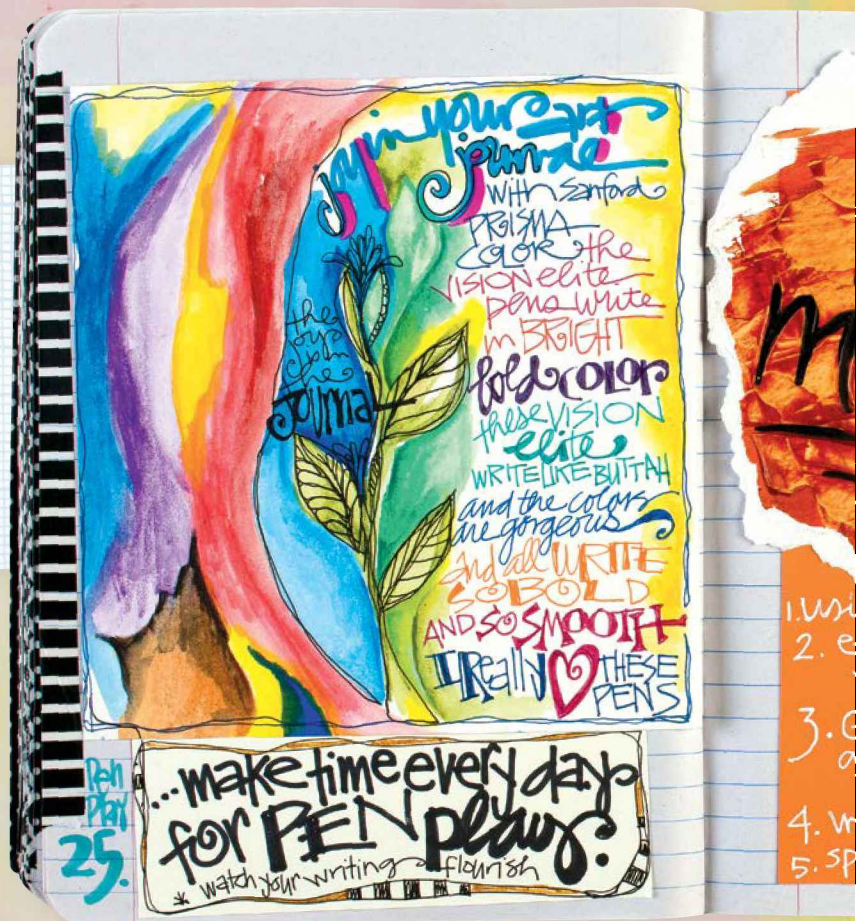 joy in your art
journal
with Sanford
PRISMA
COLOR the
VISION elite
pens write
in BRIGHT
bold COLOR
these VISION
elite
WRITE LIKE BUTTAH
and the colors
are gorgeous
and all WRITE
SO BOLD
AND SO SMOOTH
I Really THESE
PENS
the
joy in
the
JOURNAL
Pen
Play
25.
...make time every day
for PEN play.
* watch your writing flourish
1. usi
2. e
3.
4. w
5. sp